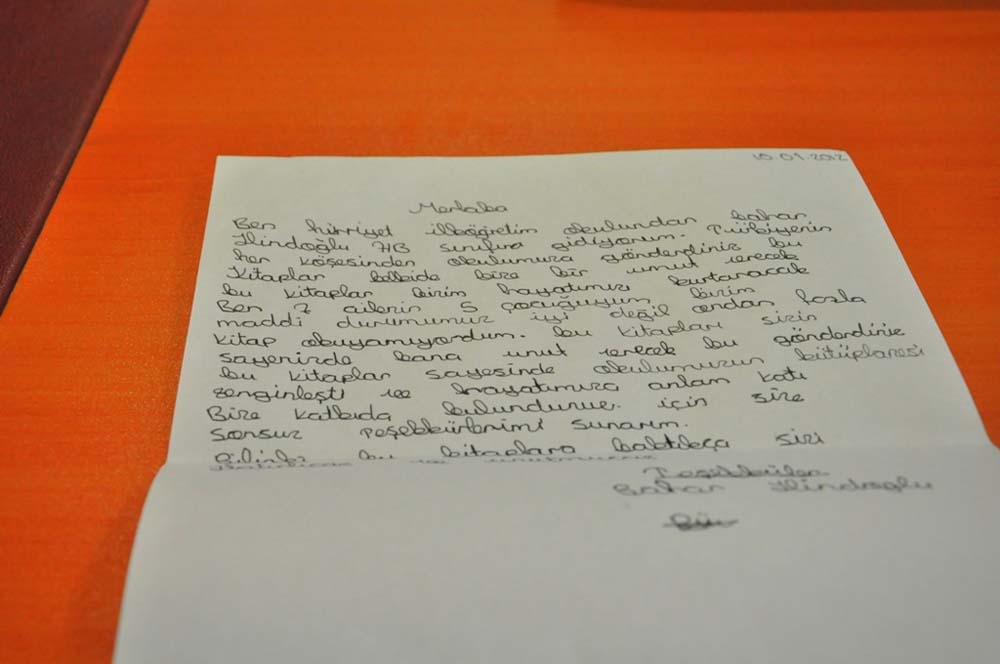 10.01.2012
Merhaba
Ben hürriyet ilköğretim okulundan bahar
7/B sınıfına gidiyorum. Türkiyenin
her köşesinden okulumuza gönderdiniz bu
Kitaplar belkide bize bir umut verecek
bu kitaplar bizim hayatımızı kurtaracak
Ben 7 ailenin 5 çocuğuyum bizim
maddi durumumuz iyi değil ondan fazla
kitap okuyamıyordum. bu kitapları sizin
sayenizde bana umut verecek bu gönderdiniz
bu kitaplar sayesinde okulumuzun kütüphanesi
zenginleşti ve hayatımıza anlam kattı
Bize katkıda bulundunuz. için size
sonsuz teşekkürlerimi sunarım.
bu kitaplara baktıkça sizi
Teşekkürler
Bahar